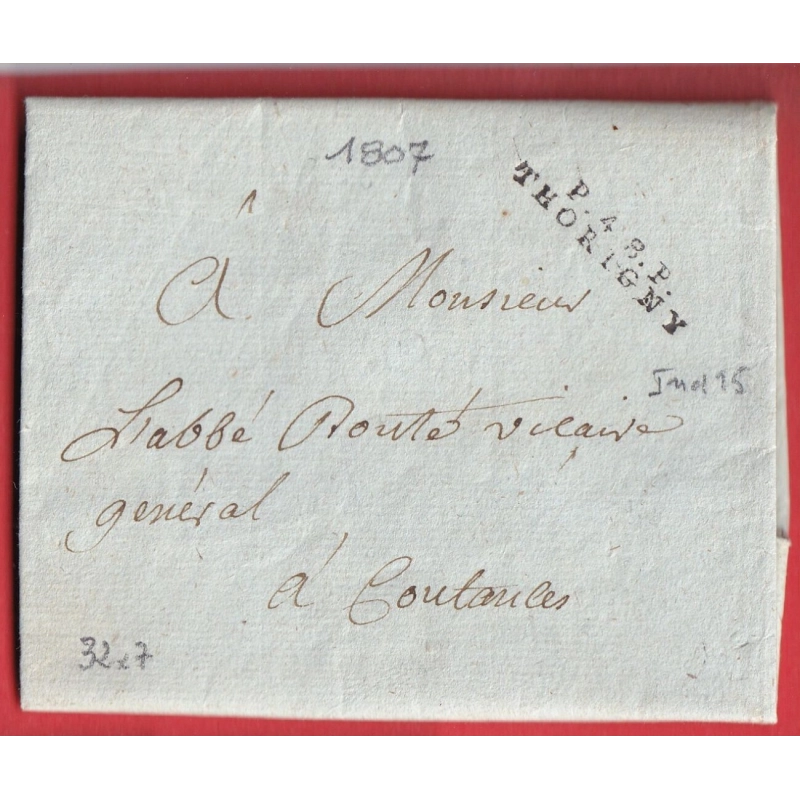 1807
P. 48. P.
THORIGNY
À Monsieur
L'abbé Bonté vicaire
général
à Coutances
Ind 15
32x7